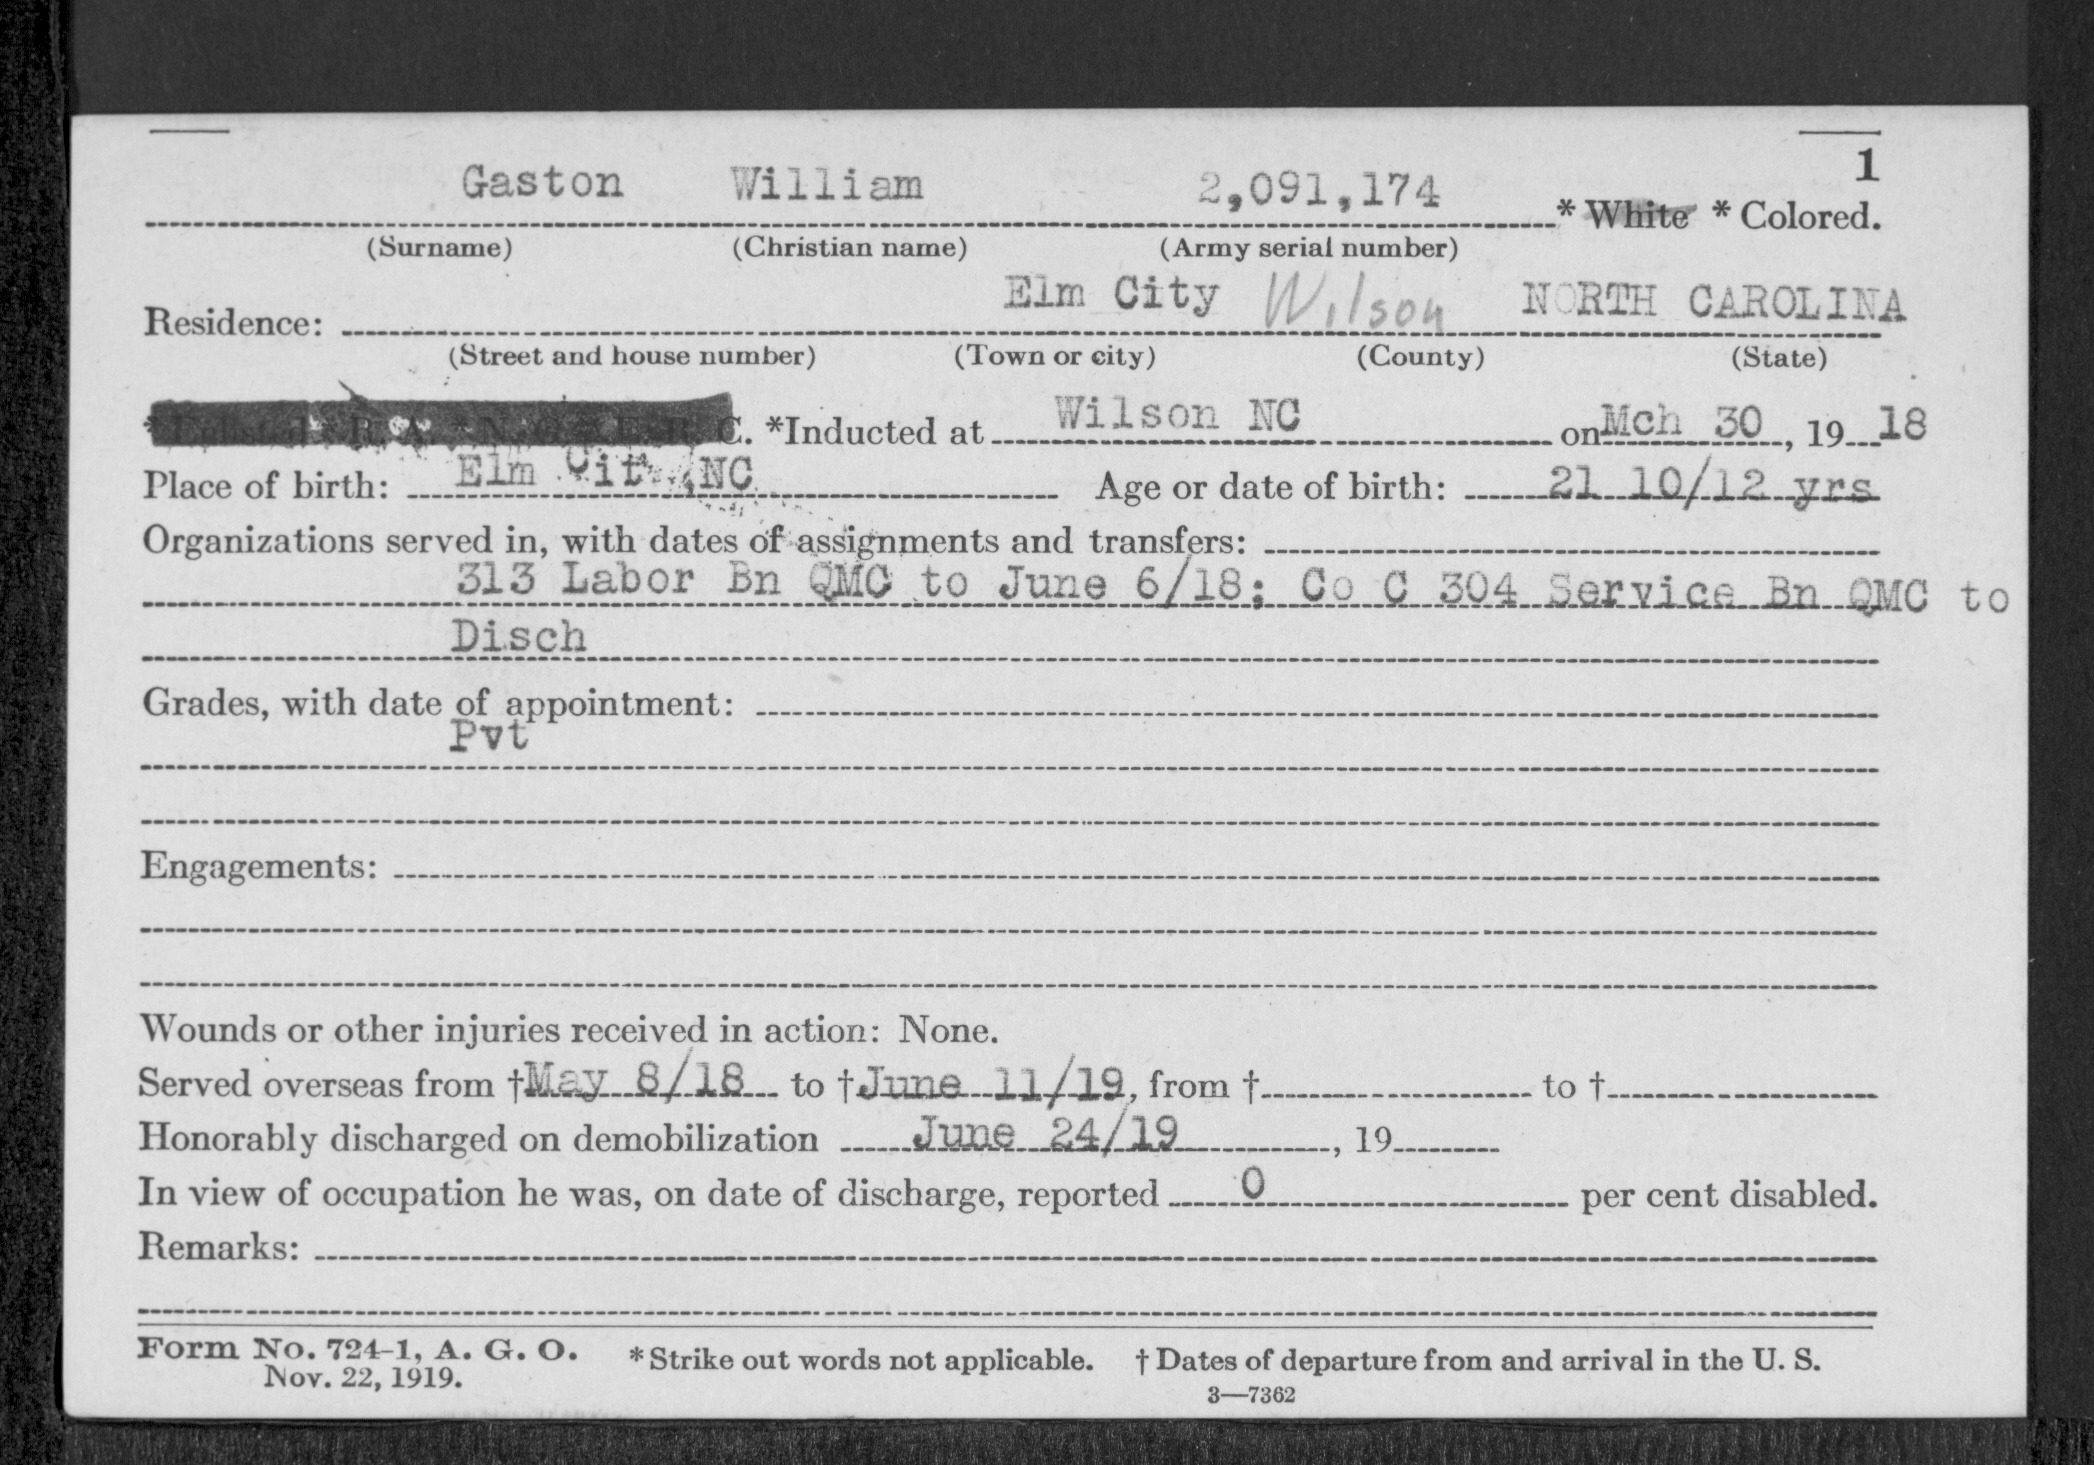 1
Gaston William 2,091,174 * White * Colored.
(Surname) (Christian name) (Army serial number)
Residence: Elm City Wilson NORTH CAROLINA
(Street and house number) (Town or city) (County) (State)
* Enlisted * R. A. * N. G. * E. R. C. *Inducted at Wilson NC on Mch 30, 19 18
Place of birth: Elm City, NC Age or date of birth: 21 10/12 yrs
Organizations served in, with dates of assignments and transfers:
313 Labor Bn QMC to June 6/18; Co C 304 Service Bn QMC to
Disch
Grades, with date of appointment:
Pvt
Engagements:
Wounds or other injuries received in action: None.
Served overseas from † May 8/18 to † June 11/19, from † to †
Honorably discharged on demobilization June 24/19, 19
In view of occupation he was, on date of discharge, reported 0 per cent disabled.
Remarks:
Form No. 724-1, A. G. O. * Strike out words not applicable. † Dates of departure from and arrival in the U. S.
Nov. 22, 1919.
3—7362